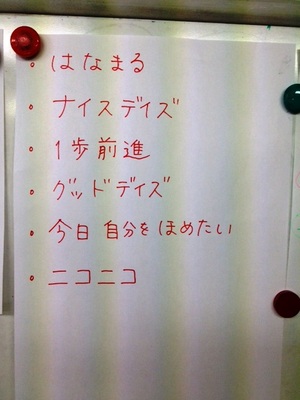 ・はなまる
・ナイスデイズ
・1歩前進
・グッドデイズ
・今日自分をほめたい
・ニコニコ